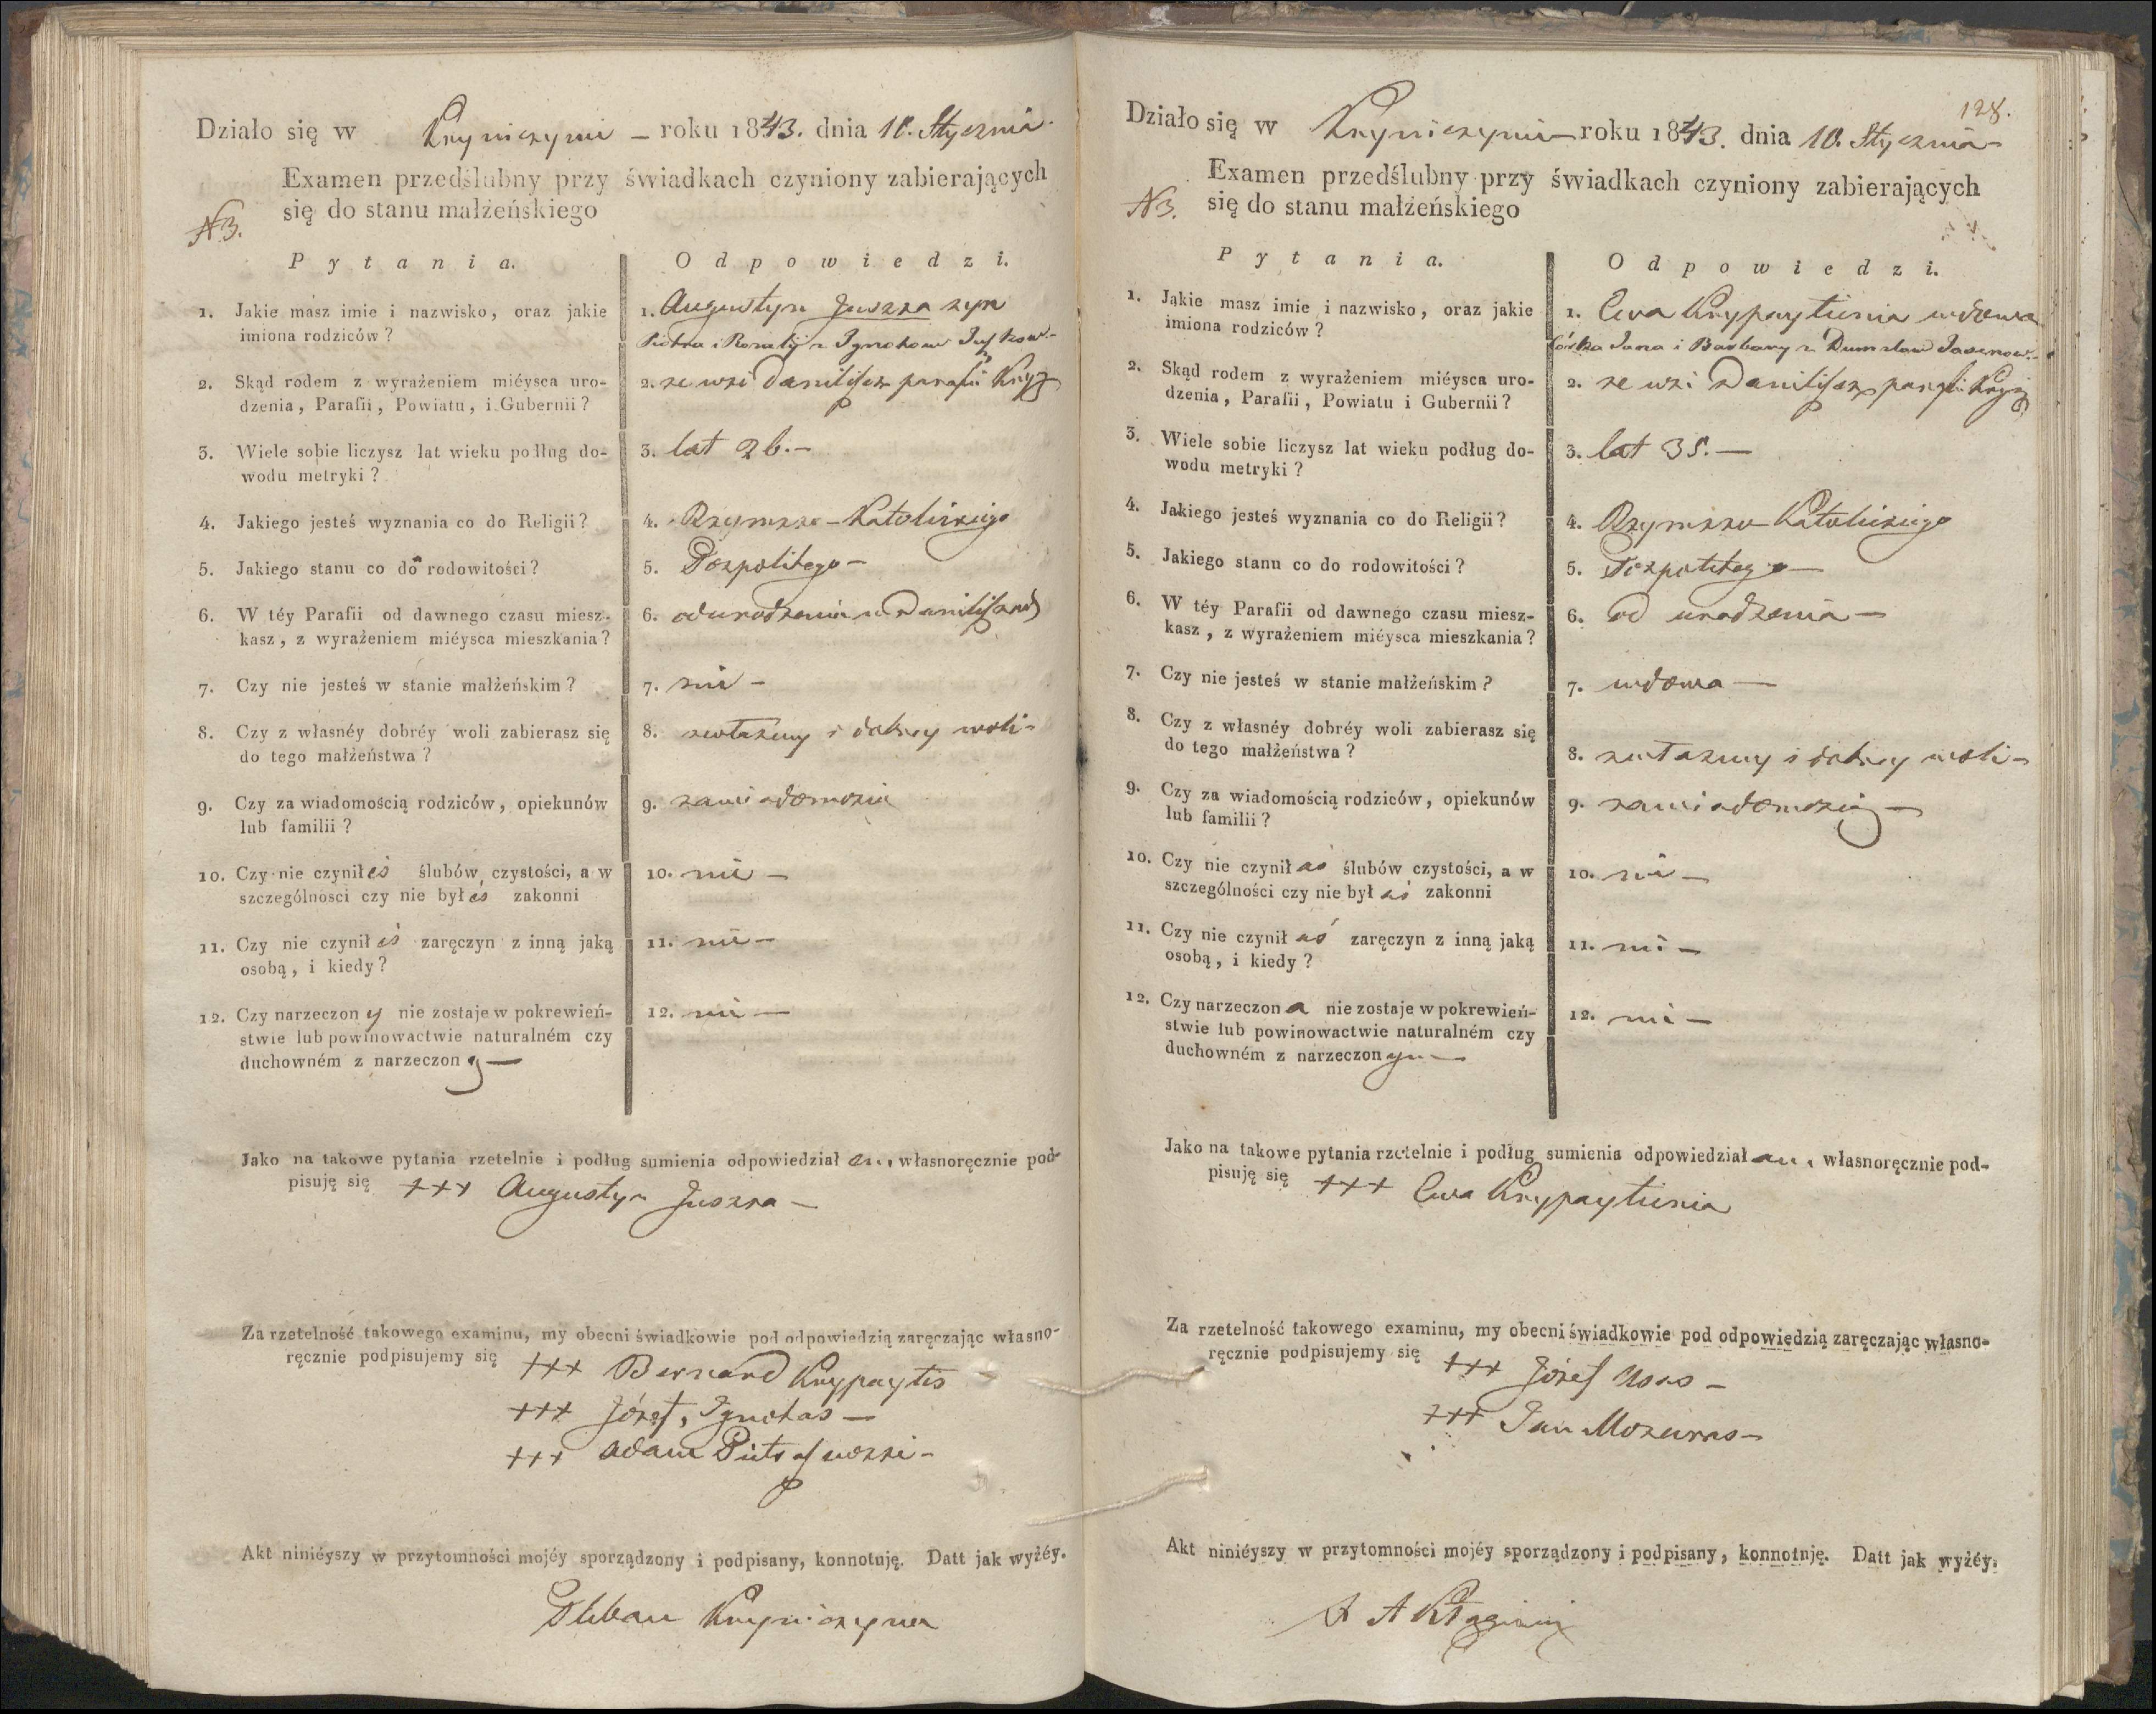 Działo się w Kryniczynie – roku 1843. dnia 10. Stycznia.
Examen przedślubny przy świadkach czyniony zabierających
się do stanu małżeńskiego
N3.
Pytania.
Odpowiedzi.
1. Jakie masz imie i nazwisko, oraz jakie
imiona rodziców?
1. Augustyn Juszka syn
Piotra i Rozalij z Ignotow Juszkow.–
2. Skąd rodem z wyrażeniem miéysca uro-
dzenia, Parafii, Powiatu, i Gubernii?
2. ze wsi Daniliszek parafii
3. Wiele sobie liczysz lat wieku podług do-
wodu metryki?
3. lat 26.–
4. Jakiego jesteś wyznania co do Religii?
4. Rzymsko-Katolickiego
5. Jakiego stanu co do rodowitości?
5. Pospolitego –
6. W téy Parafii od dawnego czasu miesz-
kasz, z wyrażeniem miéysca mieszkania?
6. od urodzenia w Daniliszkach
7. Czy nie jesteś w stanie małżeńskim?
7. nie –
8. Czy z własnéy dobréy woli zabierasz się
do tego małżeństwa?
8. zwłasney i dobrey woli –
9. Czy za wiadomością rodziców, opiekunów
lub familii?
9. zawiadomością
10. Czy nie czynił eś ślubów czystości, a w
szczególnosci czy nie był eś zakonni
10. nie –
11. Czy nie czynił eś zaręczyn z inną jaką
osobą, i kiedy?
11. nie –
12. Czy narzeczon y nie zostaje w pokrewień-
stwie lub powinowactwie naturalném czy
duchowném z narzeczon ą –
12. nie –
Jako na takowe pytania rzetelnie i podług sumienia odpowiedział em, własnoręcznie pod-
pisuję się +++ Augustyn Juszka –
Za rzetelność takowego examinu, my obecni świadkowie pod odpowiedzią zaręczając własno-
ręcznie podpisujemy się +++ Bernard Krypaytis
+++ Józef, Ignotas –
+++ Adam
Akt niniéyszy w przytomności mojéy sporządzony i podpisany, konnotuję. Datt jak wyżéy.
Pleban
128.
Działo się w Kryniczynie – roku 1843. dnia 10. Stycznia –
Examen przedślubny przy świadkach czyniony zabierających
się do stanu małżeńskiego
N3.
Pytania.
Odpowiedzi.
1. Jakie masz imie i nazwisko, oraz jakie
imiona rodziców?
1. Ewa Krypaytienia wdowa
córka Jana i Barbary z
2. Skąd rodem z wyrażeniem miéysca uro-
dzenia, Parafii, Powiatu i Gubernii?
2. ze wsi Daniliszek parafii
3. Wiele sobie liczysz lat wieku podług do-
wodu metryki?
3. lat 35. –
4. Jakiego jesteś wyznania co do Religii?
4. Rzymsko Katolickiego
5. Jakiego stanu co do rodowitości?
5. Pospolitego –
6. W téy Parafii od dawnego czasu miesz-
kasz, z wyrażeniem miéysca mieszkania?
6. od urodzenia –
7. Czy nie jesteś w stanie małżeńskim?
7. wdowa –
8. Czy z własnéy dobréy woli zabierasz się
do tego małżeństwa?
8. zwłasney i dobrey woli –
9. Czy za wiadomością rodziców, opiekunów
lub familii?
9. zawiadomością –
10. Czy nie czynił aś ślubów czystości, a w
szczególności czy nie był aś zakonni
10. nie –
11. Czy nie czynił aś zaręczyn z inną jaką
osobą, i kiedy?
11. nie –
12. Czy narzeczon a nie zostaje w pokrewień-
stwie lub powinowactwie naturalném czy
duchowném z narzeczon ym –
12. nie –
Jako na takowe pytania rzetelnie i podług sumienia odpowiedział am, własnoręcznie pod-
pisuję się +++ Ewa Krypaytienia
Za rzetelność takowego examinu, my obecni świadkowie pod odpowiedzią zaręczając własno-
ręcznie podpisujemy się +++ Józef Usas –
+++ Jan Mozuras –
Akt niniéyszy w przytomności mojéy sporządzony i podpisany, konnotuję. Datt jak wyżéy.